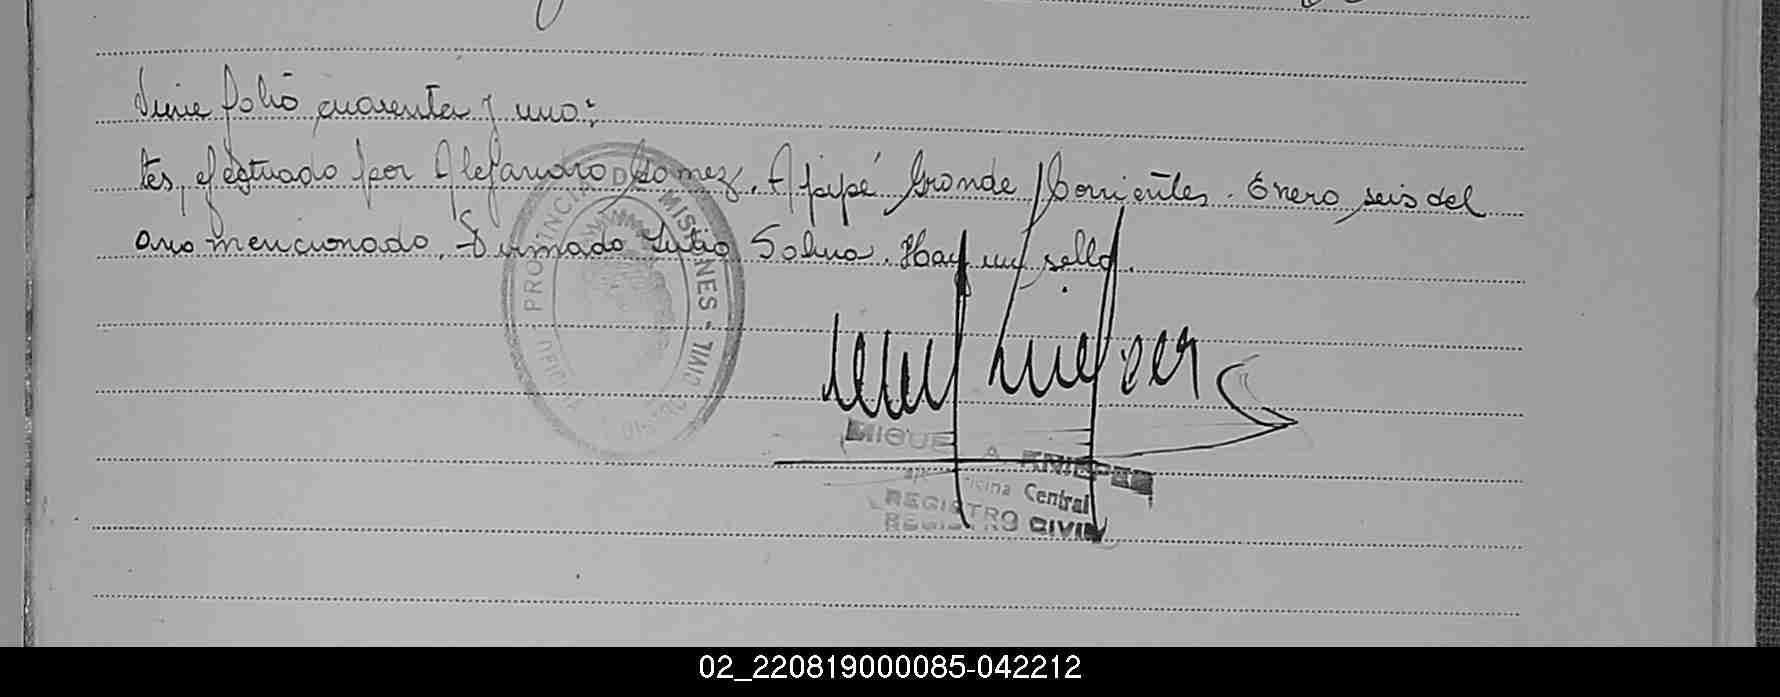 Viene folio cuarenta y uno:
tes, efectuado por Alejandro Gomez. Apipé Grande, Corrientes. Enero seis del
ano mencionado. Firmado Julio Solua. Hay un sello.
PROVINCIA DE MISIONES - CIVIL
MIGUEL A. KNIEPER
Oficina Central
REGISTRO CIVIL
02_220819000085-042212